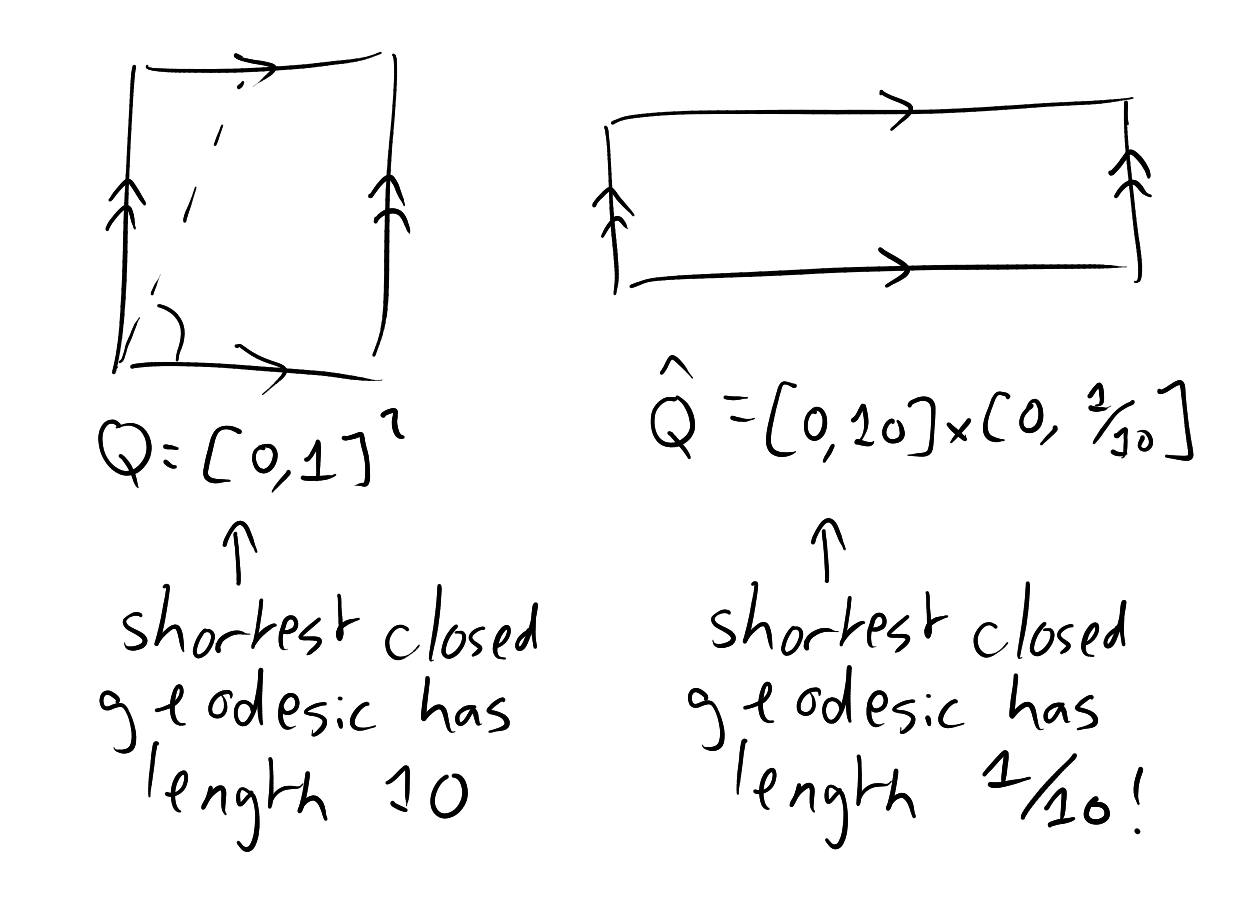 Q = [0,1]²
Q̂ = [0,10] × [0, 1/10]
↑
shortest closed
geodesic has
length 10
↑
shortest closed
geodesic has
length 1/10!